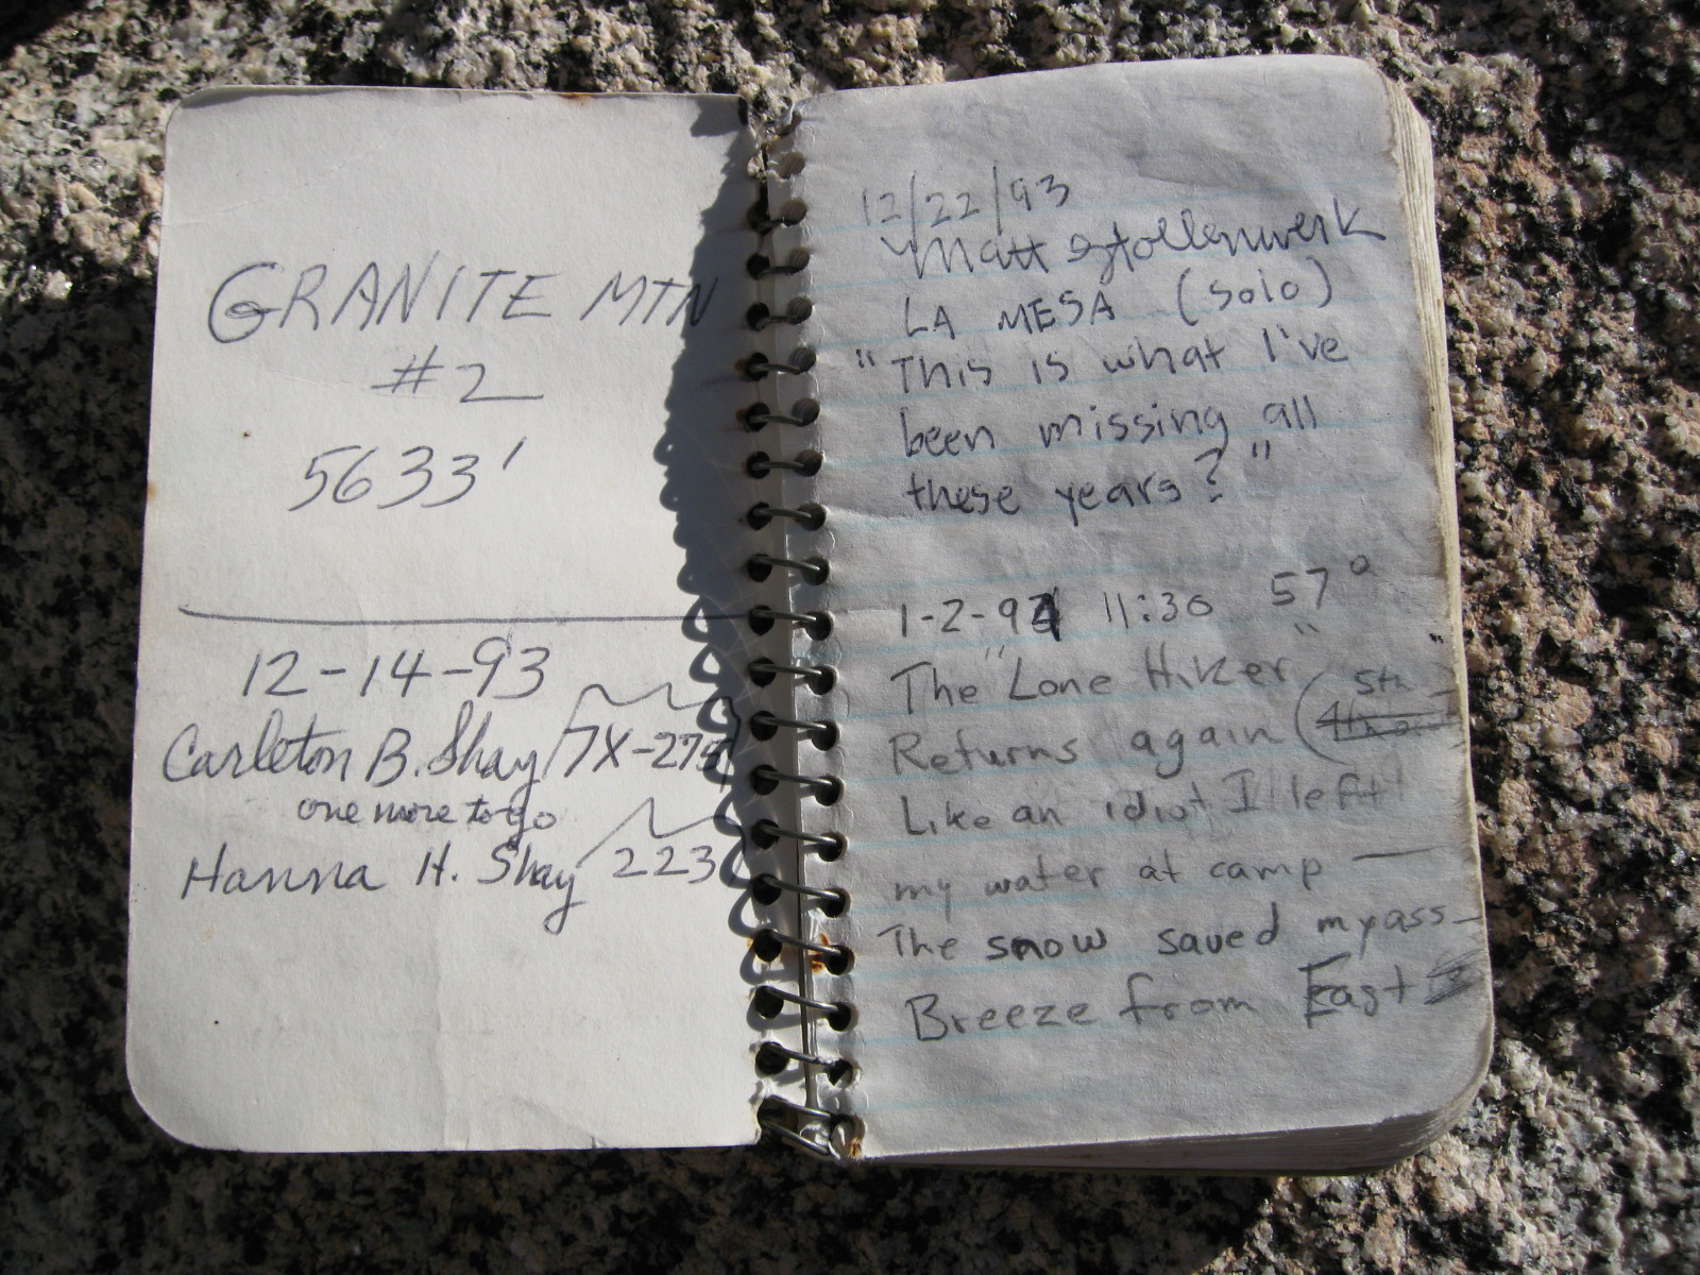 GRANITE MTN
#2
5633'
12-14-93
Carleton B. Shay 7X-275
one more to go
Hanna H. Shay 223
12/22/93
Matt Stollenwerk
LA MESA (solo)
"This is what I've
been missing all
these years?"
1-2-94 11:30 57°
The "Lone Hiker"
Returns again (5th
Like an idiot I left
my water at camp —
The snow saved my ass -
Breeze from East